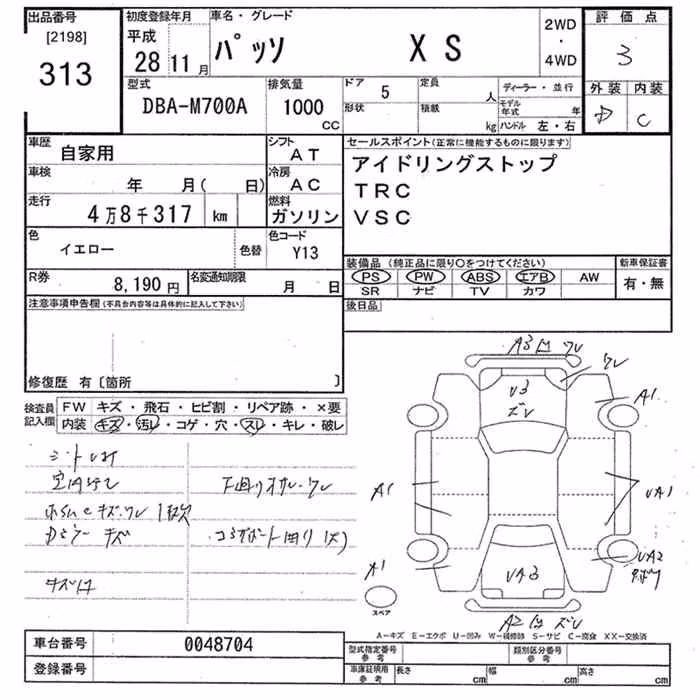 出品番号
[2198]
313
初度登録年月
平成
28 11月
車名・グレード
パッソ XS
2WD
・
4WD
評価点
3
外装 内装
D C
型式
DBA-M700A
排気量
1000
CC
ドア 5
形状
定員 人
積載 kg
ディーラー・並行
モデル年式 年
ハンドル 左・右
車歴
自家用
シフト
AT
車検
年 月( 日)
冷房
AC
走行
4万8千317 km
燃料
ガソリン
色
イエロー
色替
色コード
Y13
R券
8,190円
名変通知期限
月 日
セールスポイント(正常に機能するものに限ります)
アイドリングストップ
TRC
VSC
装備品 (純正品に限り○をつけてください)
PS PW ABS エアB AW
SR ナビ TV カワ
新車保証書
有・無
注意事項申告欄(不具合内容等は具体的に記入して下さい)
後日品
修復歴 有〔箇所 〕
検査員
記入欄
FW キズ・飛石・ヒビ割・リペア跡・×要
内装 キズ・汚レ・コゲ・穴・スレ・キレ・破レ
キズ
A3 凹 ワレ
ワレ
U3
ズレ
A1
A1
UA1
A1
UA2
UA3
A2 凹 ズレ
スペア
A-キズ E-エクボ U-凹み W-補修跡 S-サビ C-腐食 XX-交換済
車台番号
0048704
登録番号
型式指定番号
参考
類別区分番号
参考
車庫証明用
参考
長さ cm
幅 cm
高さ cm